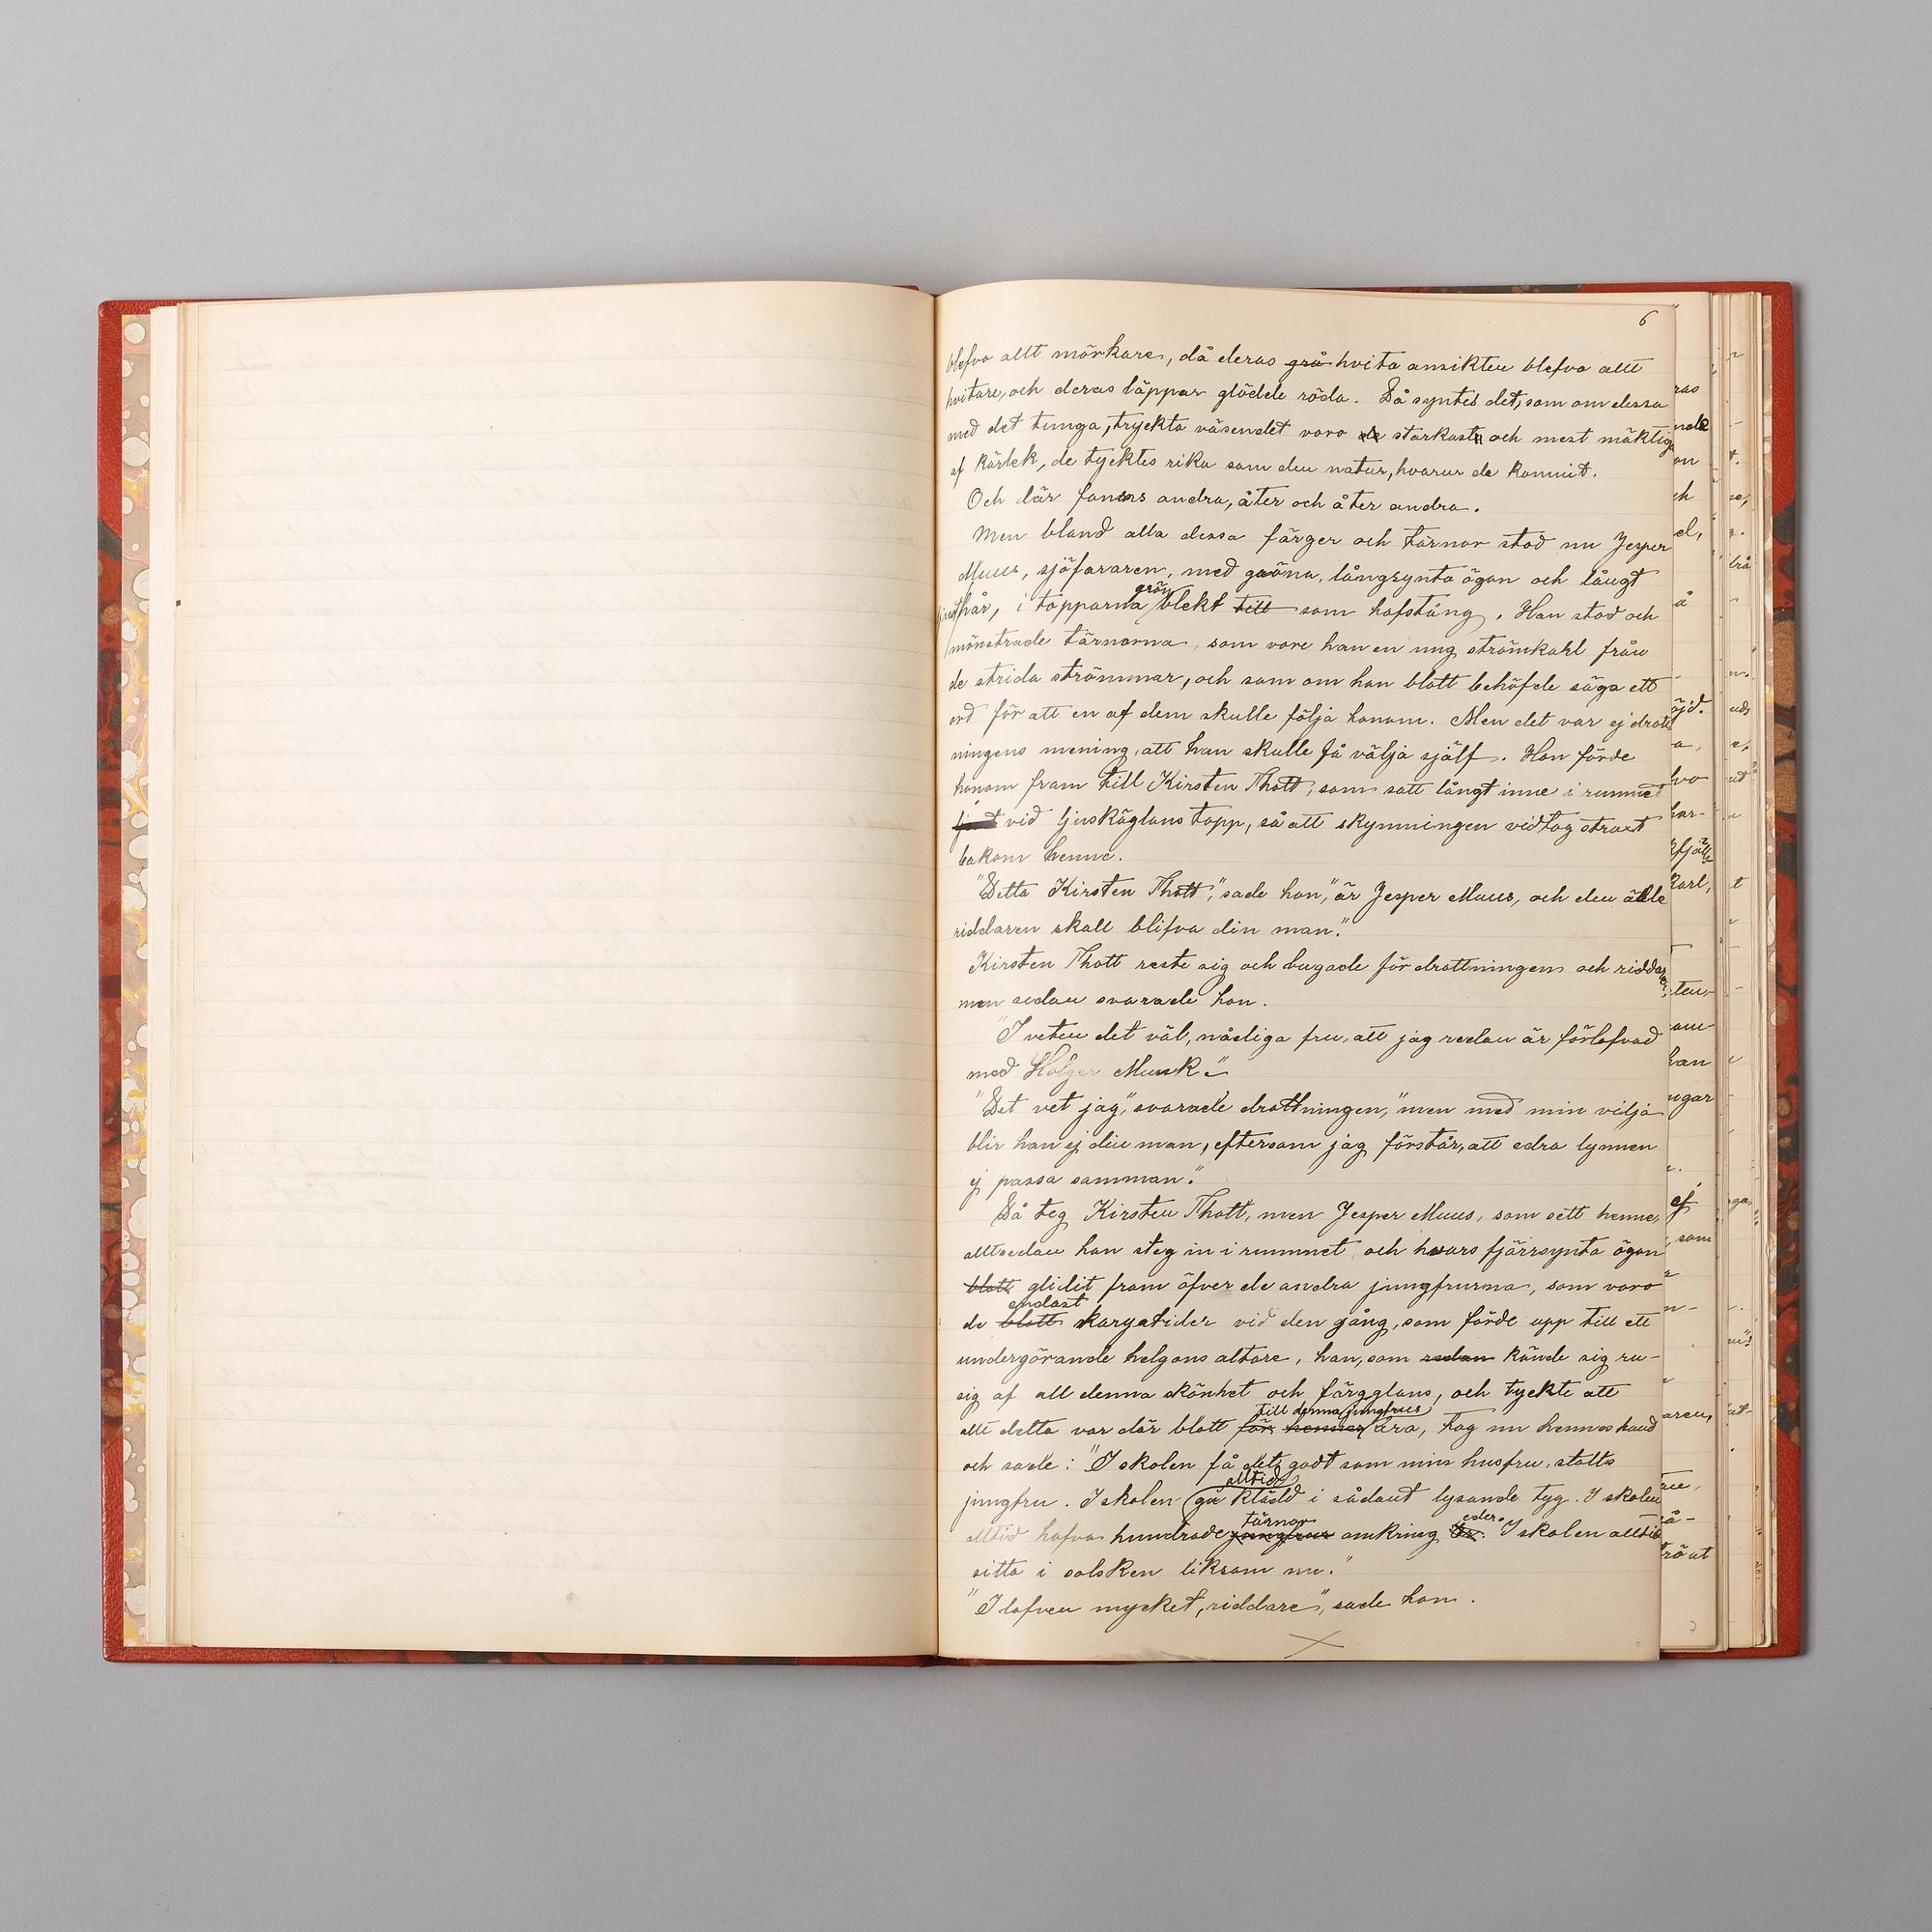 6
blefvo allt mörkare, då deras grå hvita ansikten blefvo allt
hvitare, och deras läppar glödde röda. Då syntes det, som om dessa
med det tunga, tryckta väsendet voro de starkaste och mest mäktiga
af kärlek, de tycktes rika som den natur, hvarur de kommit.
Och där fanns andra, åter och åter andra.
Men bland alla dessa färger och tärnor stod nu Jesper
Muus, sjöfararen, med gröna, långsynta ögon och långt
grön
ljust hår, i topparna blekt till som hafstång. Han stod och
mönstrade tärnorna, som vore han en ung strömkarl från
de strida strömmar, och som om han blott behöfde säga ett
ord för att en af dem skulle följa honom. Men det var ej drott
ningens mening, att han skulle få välja själf. Hon förde
honom fram till Kirsten Thott, som satt långt inne i rummet
vid ljuskäglans topp, så att skymningen vidtog strax
bakom henne.
"Detta Kirsten Thott," sade hon, "är Jesper Muus, och den ädle
riddaren skall blifva din man."
Kirsten Thott reste sig och bugade för drottningen och riddaren,
men sedan svarade hon.
"I veten det väl, nådiga fru, att jag redan är förlofvad
med Holger Munk."
"Det vet jag," svarade drottningen, "men med min vilja
blir han ej din man, eftersom jag förstår, att edra lynnen
ej passa samman."
Då teg Kirsten Thott, men Jesper Muus, som sett henne,
alltsedan han steg in i rummet och hvars fjärrsynta ögon
blott glidit fram öfver de andra jungfrurna, som voro
endast
de blott karyatider vid den gång, som förde upp till ett
undergörande helgons altare, han, som redan kände sig ru-
sig af all denna skönhet och färgglans, och tyckte att
till denna jungfrus
allt detta var där blott för hennes ära, tog nu hennes hand
och sade: "I skolen få det godt som min husfru, stolts
alltid
jungfru. I skolen gå klädd i sådant lysande tyg. I skolen
tärnor eder.
alltid hafva hundrade jungfrur omkring Er. I skolen alltid
sitta i solsken liksom nu."
"I lofven mycket, riddare", sade hon.